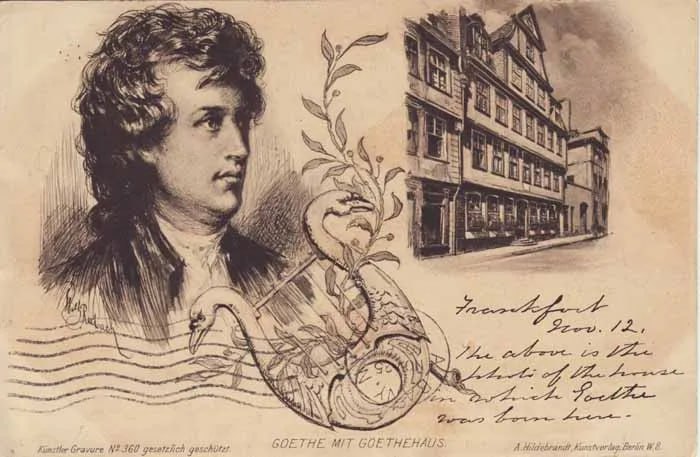 Frankfort
Nov. 12.
The above is the
photo of the house
in which Goethe
was born here.
Künstler Gravure Nº 360 gesetzlich geschützt.
GOETHE MIT GOETHEHAUS.
A. Hildebrandt, Kunstverlag, Berlin W. 8.